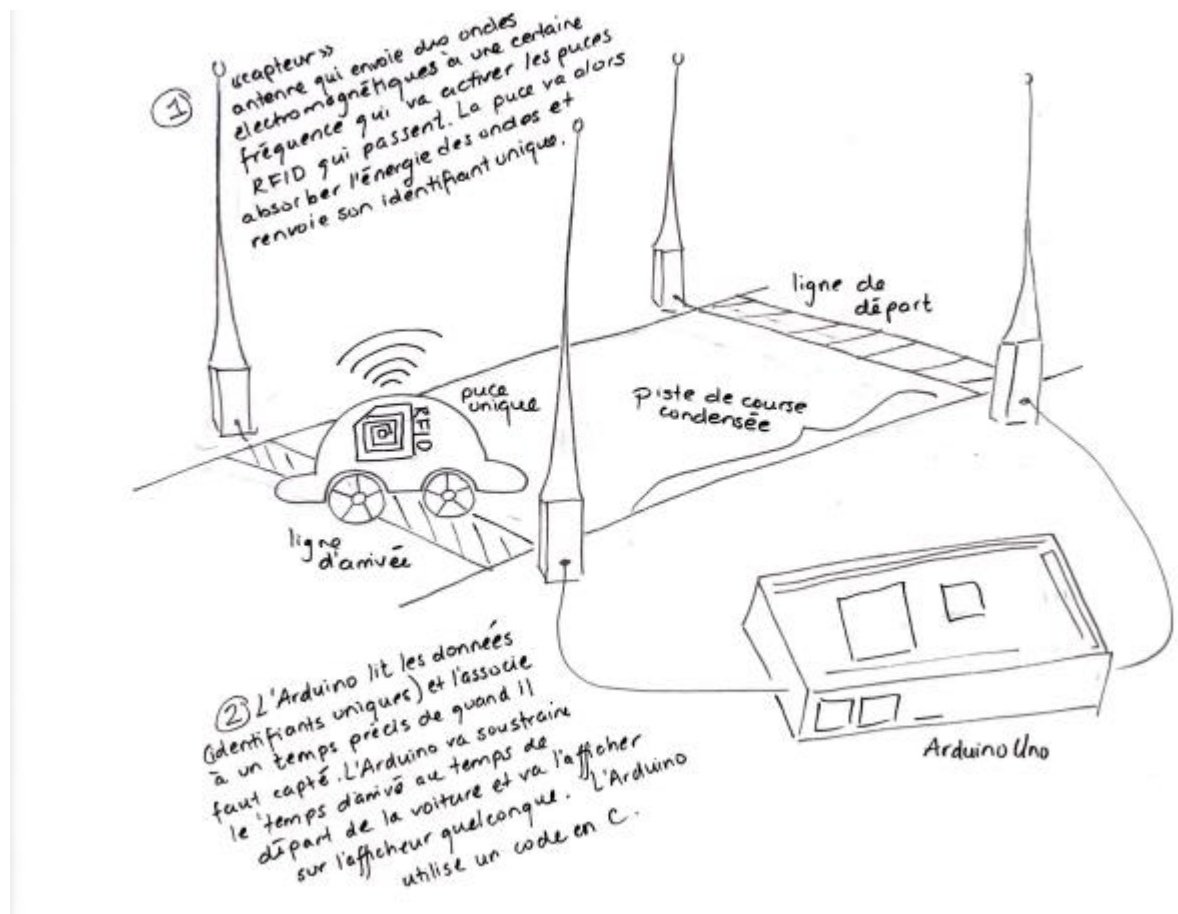 ①
«capteur»
antenne qui envoie des ondes
électromagnétiques à une certaine
fréquence qui va activer les puces
RFID qui passent. La puce va alors
absorber l'énergie des ondes et
renvoie son identifiant unique.
ligne de
départ
puce
unique
RFID
piste de course
condensée
ligne
d'arrivée
② L'Arduino lit les données
(identifiants uniques) et l'associe
à un temps précis de quand il
faut capté. L'Arduino va soustraire
le temps d'arrivé au temps de
départ de la voiture et va l'afficher
sur l'afficheur quelconque. L'Arduino
utilise un code en C.
Arduino Uno